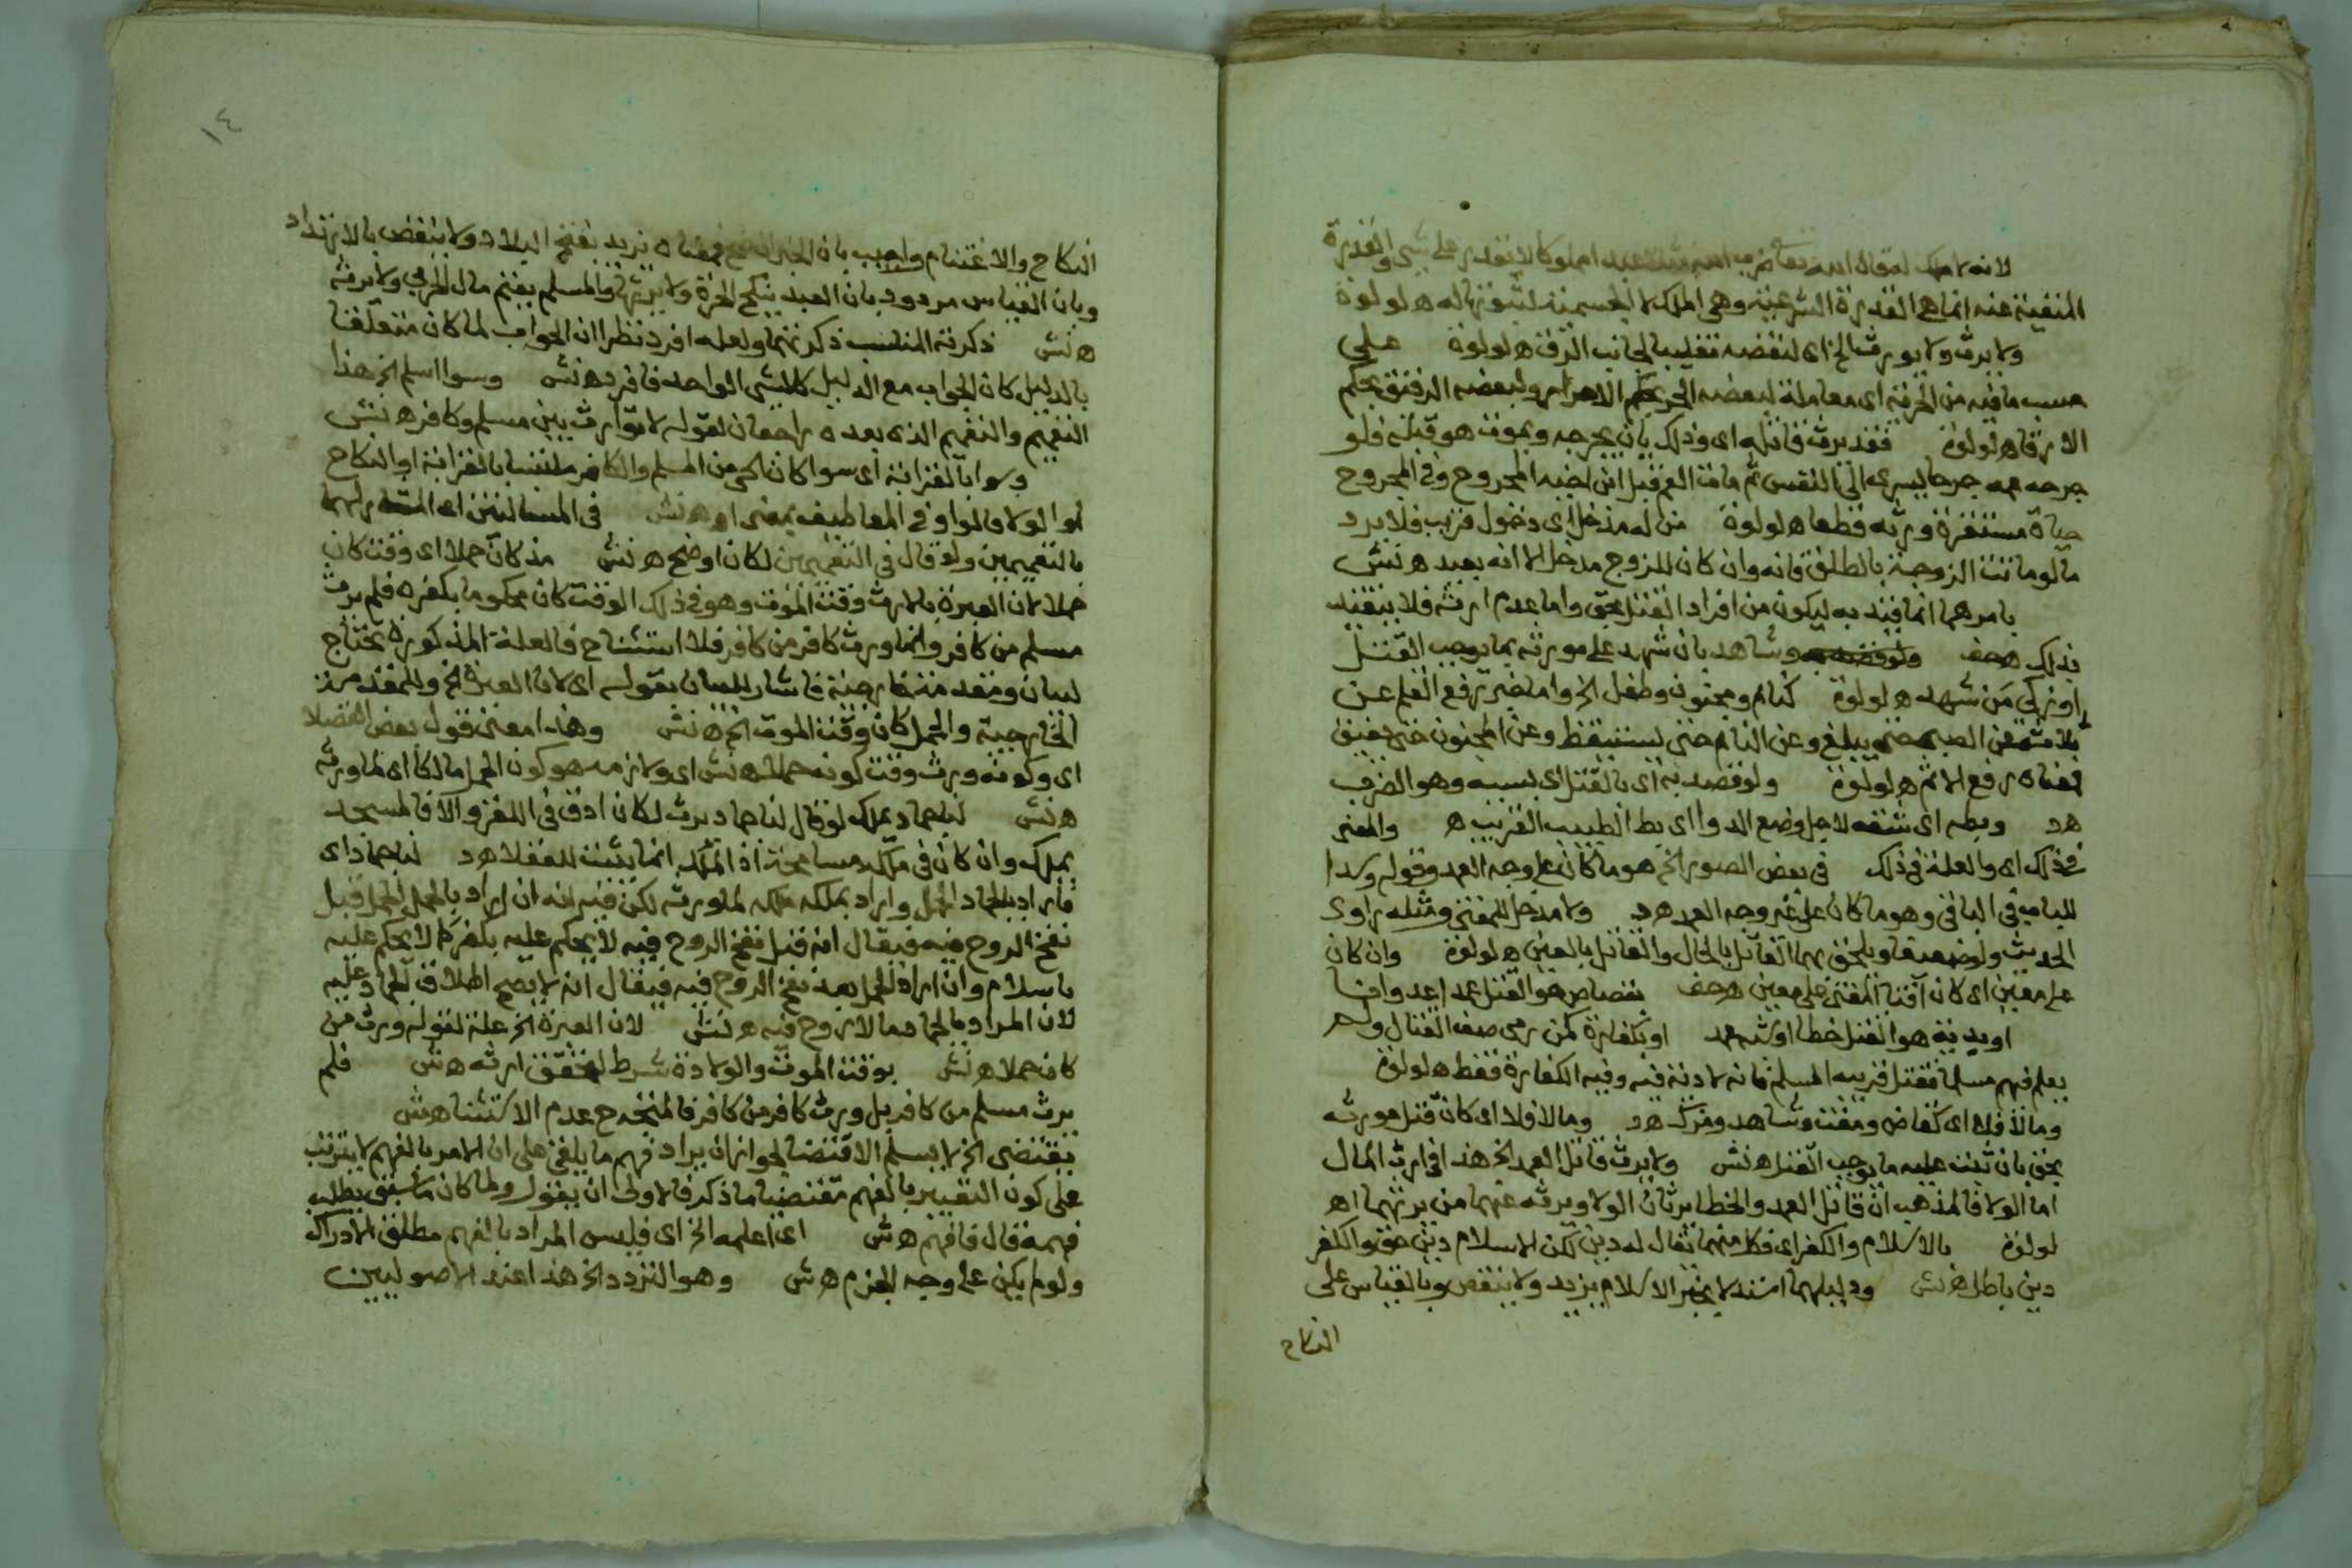 لانه لا ملك لقوله ضرب الله مثلا عبدا مملوكا لا يقدر على شى والقدرة
المنفية عنه انما هى القدرة الشرعية وهى الملك لا الحسية لثبوتها له ه لولوة
ولا يرث ولا يورث الخ اى لنقصه تغليبا لجانب الرق ه لولوة على
حسب ما فيه من الحرية اى معاملة لبعضه الحر بحكم الاحرار ولبعضه الرقيق بحكم
الارقا ه لولوة فقد يرث قاتله اى وذلك بان يجرحه ويموت هو قبله فلو
جرحه عمه جرحا يسرى الى النفس ثم مات العم قبل ابن اخيه المجروح وفى المجروح
حياة مستقرة ورثه قطعا ه لولوة من له مدخل اى دخول قريب فلا يرد
ما لو ماتت الزوجة بالطلق فانه وان كان للزوج مدخل الا انه بعيد ه نش
يامرهما انما قيد به ليكون من افراد القتل بحق واما عدم ارثه فلا يتقيد
بذلك هحف وشاهد بان شهد على مورثه بما يوجب القتل
او زكى من شهد ه لولوة كنائم ومجنون وطفل الخ واما خبر رفع القلم عن
ثلاثة عن الصبى حتى يبلغ وعن النائم حتى يستيقظ وعن المجنون حتى يفيق
فمعناه رفع الاثم ه لولوة ولو قصد به اى بالقتل اى بسببه وهو الضرب
هد وبطه اى شقه لاجل وضع الدوا اى بط الطبيب القريب ه والمعنى
فى ذلك اى والعلة فى ذلك فى بعض الصور الخ هو ما كان على وجه العمد وقوله وسدا
للباب فى الباقى وهو ما كان على غير وجه العمد هد ولا مدخل للمفتى ومثله راوى
الحديث ولو ضعيفا ويلحق بهما القاتل بالحال والقاتل بالعين ه لولوة وان كان
على معين اى كان افتا المفتى على معين هحف بقصاص هو القتل عمدا عدوانا
او بدية هو القتل خطا او شبه عمد او بكفارة كمن رمى صف القتال ولم
يعلم فيهم مسلما فقتل قريبه المسلم فانه لا دية فيه وفيه الكفارة فقط ه لولوة
وما لا فلا اى كقاض ومفت وشاهد ومزك هد وما لا فلا اى كان قتل مورثه
بحق بان ثبت عليه ما يوجب القتل ه نش ولا يرث قاتل العمد الخ هذا فى ارث المال
اما الولا فالمذهب ان قاتل العمد والخطا يرثان الولا ويرثه عنهما من يرثهما اه
لولوة بالاسلام والكفر اى فكل منهما يقال له دين لكن الاسلام دين حق والكفر
دين باطل ه نش ودليلهما خبر الاسلام يزيد ولا ينقص وبالقياس على
النكاح
١٤
النكاح والاغتنام واجيب بان الخبر معناه يزيد بفتح البلاد ولا ينقص بالارتداد
وبان القياس مردود بان العبد ينكح الحرة ولا يرثها والمسلم يغنم مال الحربى ولا يرثه
ه نش ذكر فيه المناسب ذكر فيهما ولعله افرد نظرا ان الجواب لما كان متعلقا
بالدليل كان الجواب مع الدليل كالشى الواحد فافرد ه نش وسوا اسلم الخ هذا
التعميم والتعميم الذى بعده راجعان لقوله لا توارث بين مسلم وكافر ه نش
وسوا بالقرابة اى سوا كان كل من المسلم والكافر ملتبسا بالقرابة او النكاح
او الولا فالواو فى المعاطيف بمعنى او ه نش فى المسالتين اى المشار لهما
بالتعميمين ولو قال فى التعميمين لكان اوضح ه نش مذ كان حملا اى وقت كان
حملا لان العبرة بالارث وقت الموت وهو فى ذلك الوقت كان محكوما بكفره فلم يرث
مسلم من كافر وانما ورث كافر من كافر فلا استثنا ح فالعلة المذكورة تحتاج
لبيان ومقدمة خارجية فاشار للبيان بقوله اى لان العبرة الخ وللمقدمة
الخارجية والحمل كان وقت الموت الخ ه نش وهذا معنى قول بعض الفضلا
اى وكونه ورث وقت كونه حملا ه نش اى ولازمه هو كون الحمل مالكا اى لما ورثه
ه نش لنا جماد يملك لو قال لنا جماد يرث لكان ادق فى اللغز والا فالمسجد
يملك وان كان فى ملكه مسامحة اذ الملك انما يثبت للعقلا هد لنا جماد اى
فاراد بالجماد الحمل واراد بملكه ملكه لما ورثه لكن فيه انه ان اراد بالحمل الحمل قبل
نفخ الروح فيه فيقال انه قبل نفخ الروح فيه لا يحكم عليه بكفر كما لا يحكم عليه
باسلام وان اراد الحمل بعد نفخ الروح فيه فيقال انه لا يصح اطلاق الجماد عليه
لان المراد بالجماد ما لا روح فيه ه نش لان العبرة الخ علة لقوله ورث من
كان حملا ه نش بوقت الموت والولادة شرط لتحقق ارثه ه نش فلم
يرث مسلم من كافر بل ورث كافر من كافر فالمتجه ح عدم الاستثنا ه نش
يقتضى الخ لا يسلم الاقتضا لجواز ان يراد فهم ما يلغى على ان الامر بالفهم لا يترتب
على كون التعبير بالفهم مقتضيا ما ذكر فالاولى ان يقول ولما كان ما سبق يطلب
فهمه قال فافهم ه نش اى اعلمه الخ اى فليس المراد بالفهم مطلق الادراك
ولو لم يكن على وجه الجزم ه نش وهو التردد الخ هذا عند الاصوليين